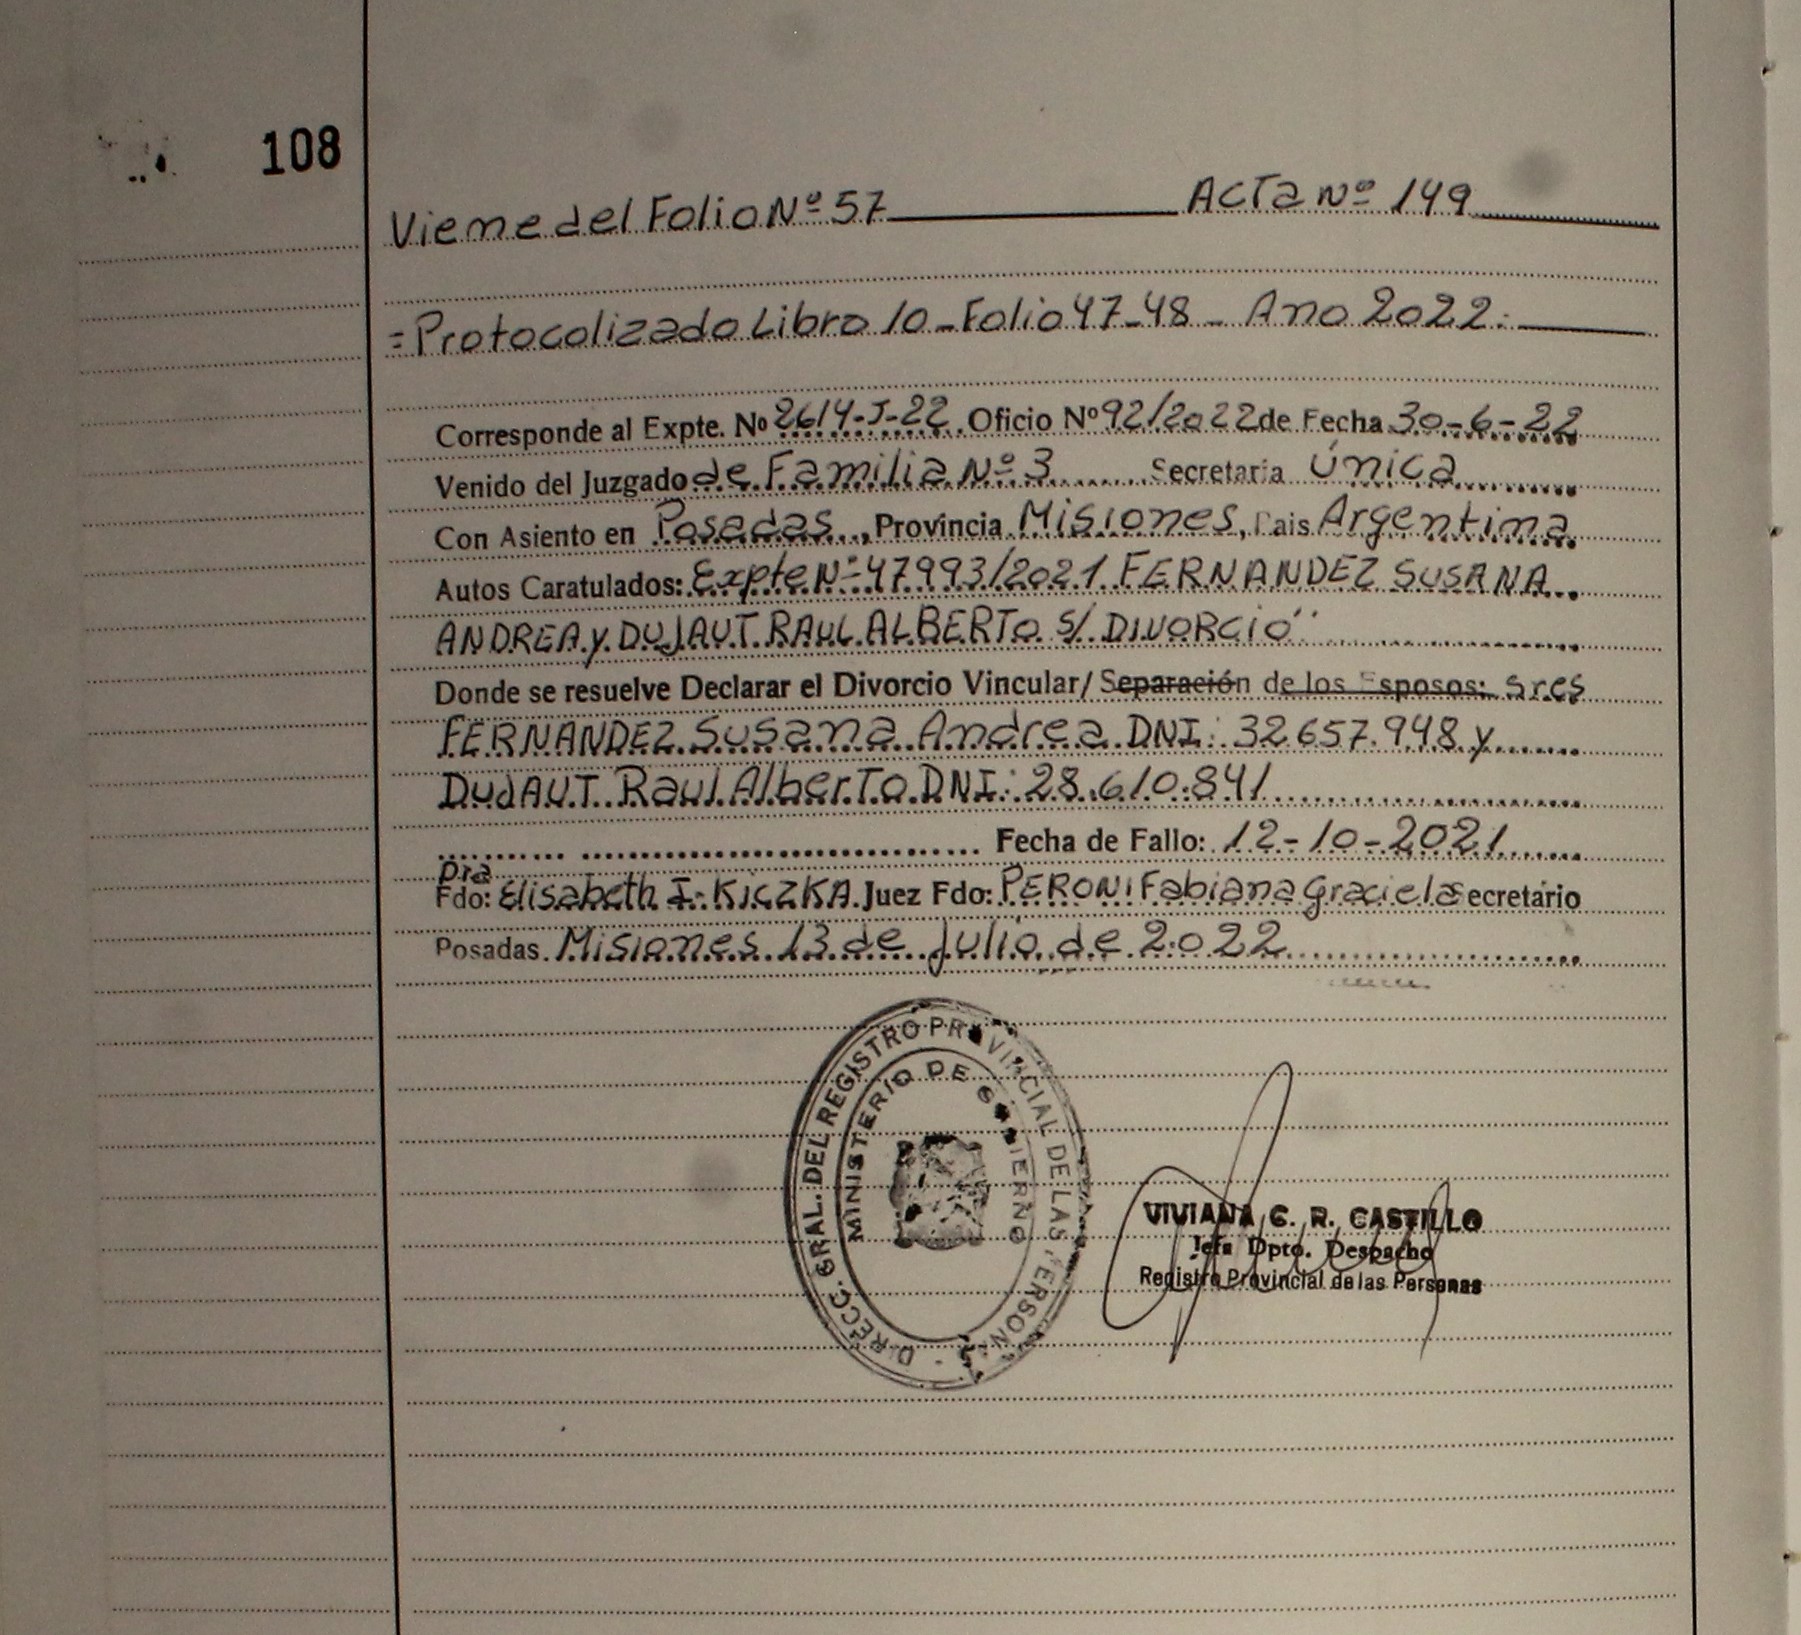 108
Viene del Folio Nº 57 Acta Nº 149
= Protocolizado Libro 10 - Folio 47-48 - Ano 2022.
Corresponde al Expte. Nº 2614-J-22. Oficio Nº 92/2022 de Fecha 30-6-22
Venido del Juzgado de Familia Nº 3 Secretaria Única
Con Asiento en Posadas, Provincia Misiones, Pais Argentina
Autos Caratulados: Expte Nº 47993/2021 FERNANDEZ SUSANA
ANDREA y DUJAUT RAUL ALBERTO S/ DIVORCIO"
Donde se resuelve Declarar el Divorcio Vincular/ Separación de los Esposos: Sres
FERNANDEZ Susana Andrea DNI: 32657.948 y
DUJAUT Raul Alberto DNI: 28.610.841
Fecha de Fallo: 12-10-2021
Dra
Fdo: Elisabeth I. KICZKA. Juez Fdo: PERONI Fabiana Graciela Secretario
Posadas Misiones 13 de Julio de 2022
DIRECC. GRAL. DEL REGISTRO PROVINCIAL DE LAS PERSONAS
MINISTERIO DE GOBIERNO
VIVIANA C. R. CASTILLO
Jefa Dpto. Despacho
Registro Provincial de las Personas